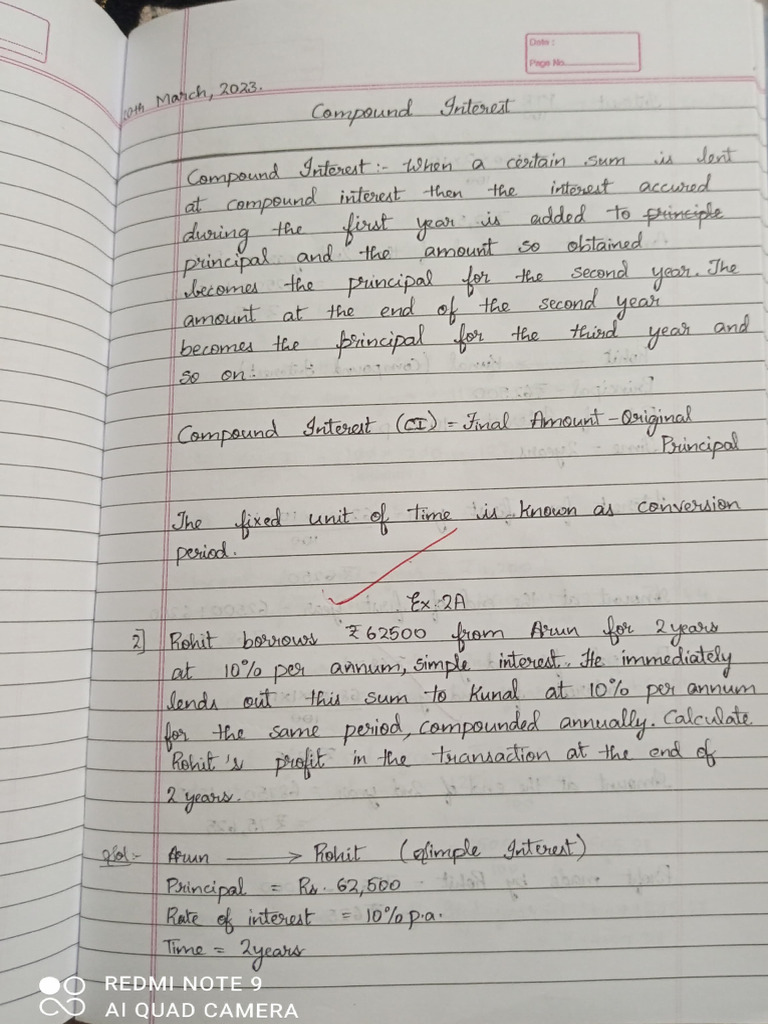 Date :
Page No.
20th March, 2023.
Compound Interest
Compound Interest :- When a certain sum is lent
at compound interest then the interest accured
during the first year is added to principle
principal and the amount so obtained
becomes the principal for the second year. The
amount at the end of the second year
becomes the principal for the third year and
so on.
Compound Interest (CI) = Final Amount - Original
Principal
The fixed unit of time is known as conversion
period.
Ex:2A
2] Rohit borrows ₹62500 from Arun for 2 years
at 10% per annum, simple interest. He immediately
lends out this sum to Kunal at 10% per annum
for the same period, compounded annually. Calculate
Rohit's profit in the transaction at the end of
2 years.
Sol:- Arun → Rohit (Simple Interest)
Principal = Rs. 62,500
Rate of interest = 10% p.a.
Time = 2years
REDMI NOTE 9
AI QUAD CAMERA